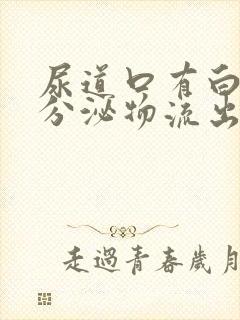 尿道口有白
分泌物流出
走過青春歲月